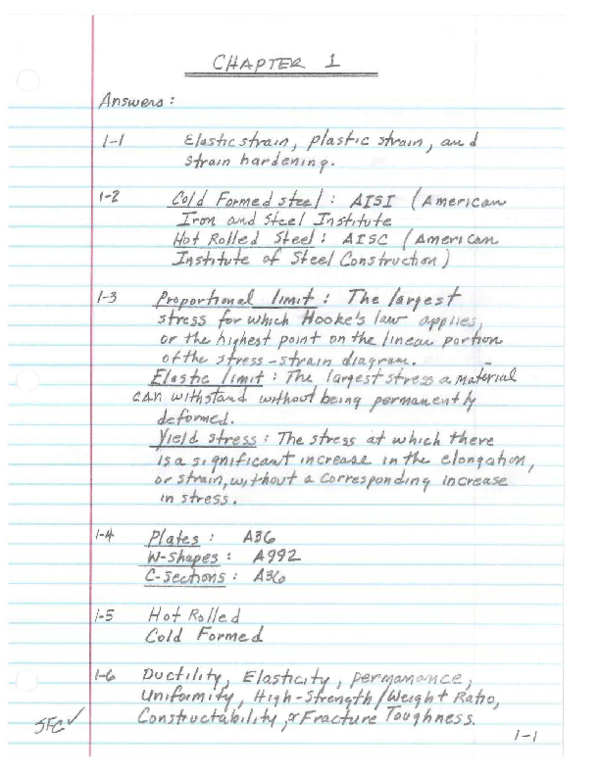 CHAPTER 1
Answers:
1-1 Elastic strain, plastic strain, and
strain hardening.
1-2 Cold Formed steel: AISI (American
Iron and Steel Institute
Hot Rolled Steel: AISC (American
Institute of Steel Construction)
1-3 Proportional limit: The largest
stress for which Hooke's law applies,
or the highest point on the linear portion
of the stress-strain diagram.
Elastic limit: The largest stress a material
can withstand without being permanently
deformed.
Yield stress: The stress at which there
is a significant increase in the elongation,
or strain, without a corresponding increase
in stress.
1-4 Plates: A36
W-Shapes: A992
C-Sections: A36
1-5 Hot Rolled
Cold Formed
1-6 Ductility, Elasticity, permanance,
Uniformity, High-Strength/Weight Ratio,
Constructability, & Fracture Toughness.
SFC ✓
1-1